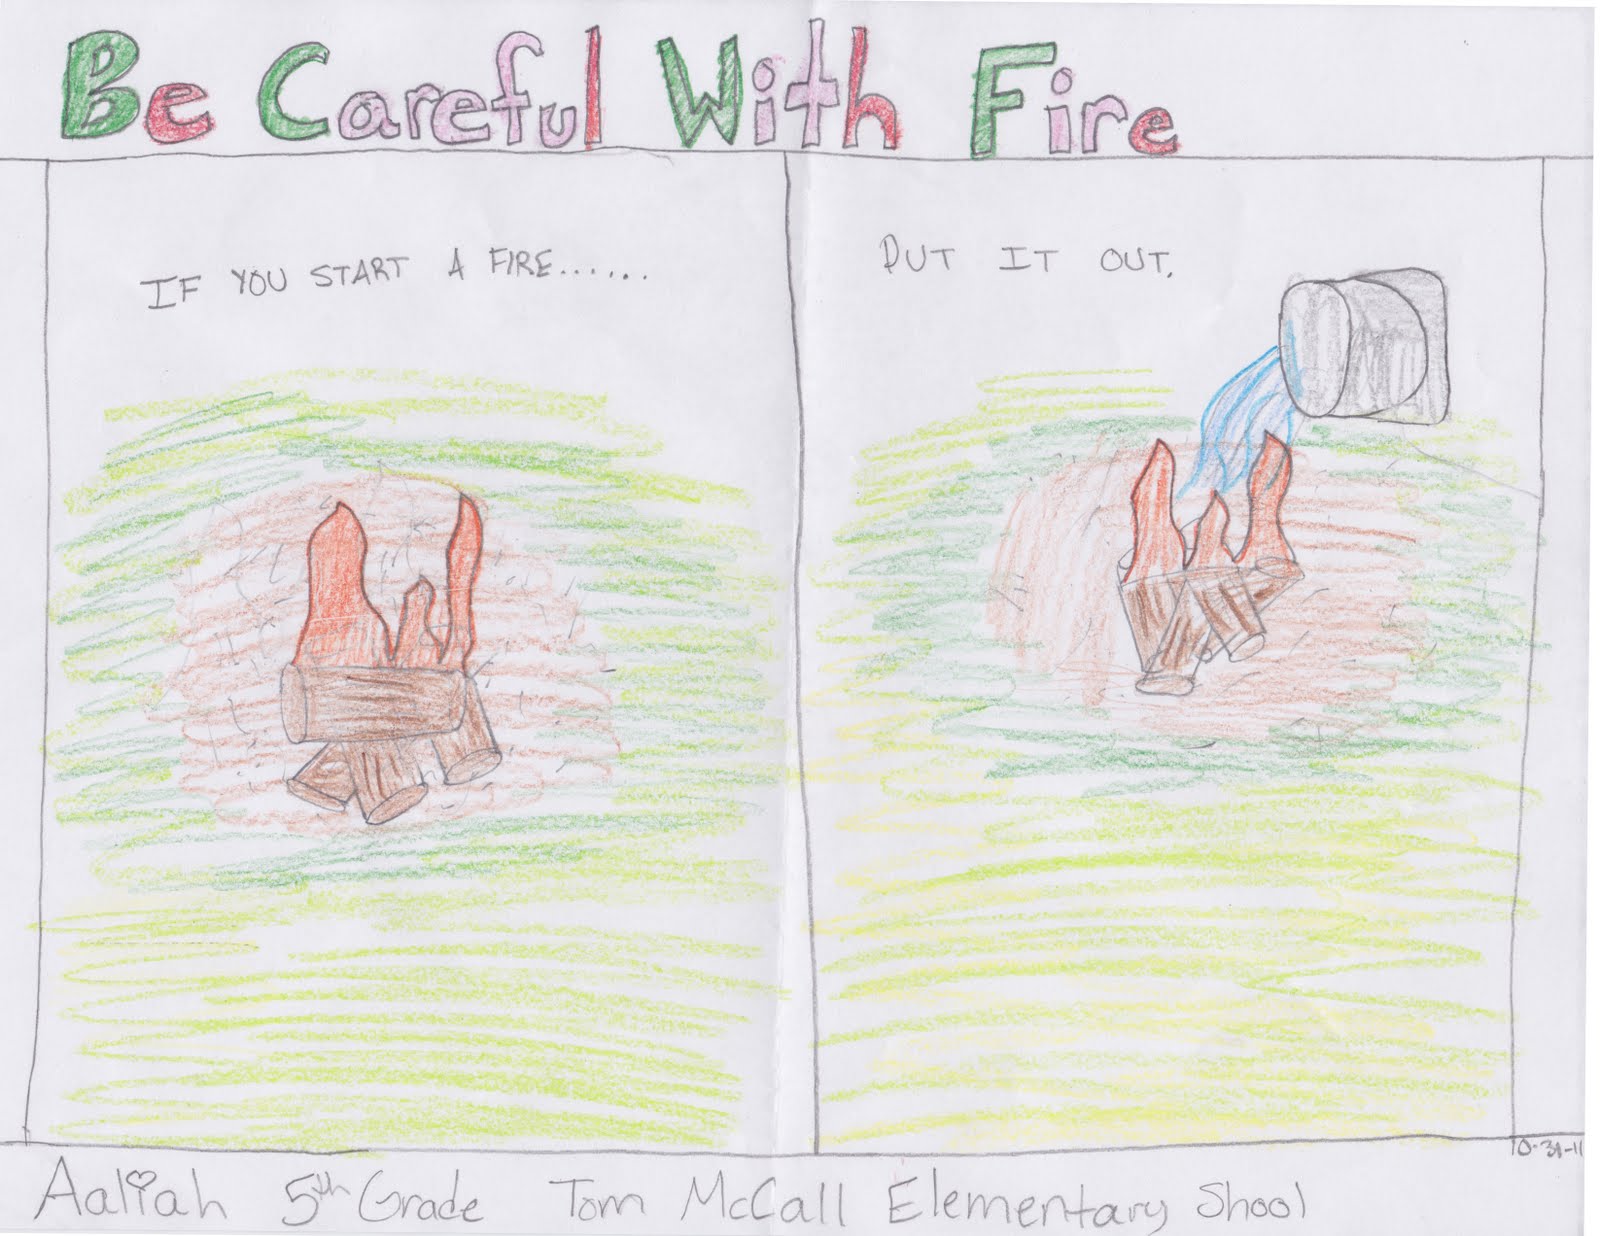 Be Careful With Fire
IF YOU START A FIRE......
PUT IT OUT.
10-31-11
Aaliah 5th Grade Tom McCall Elementary Shool